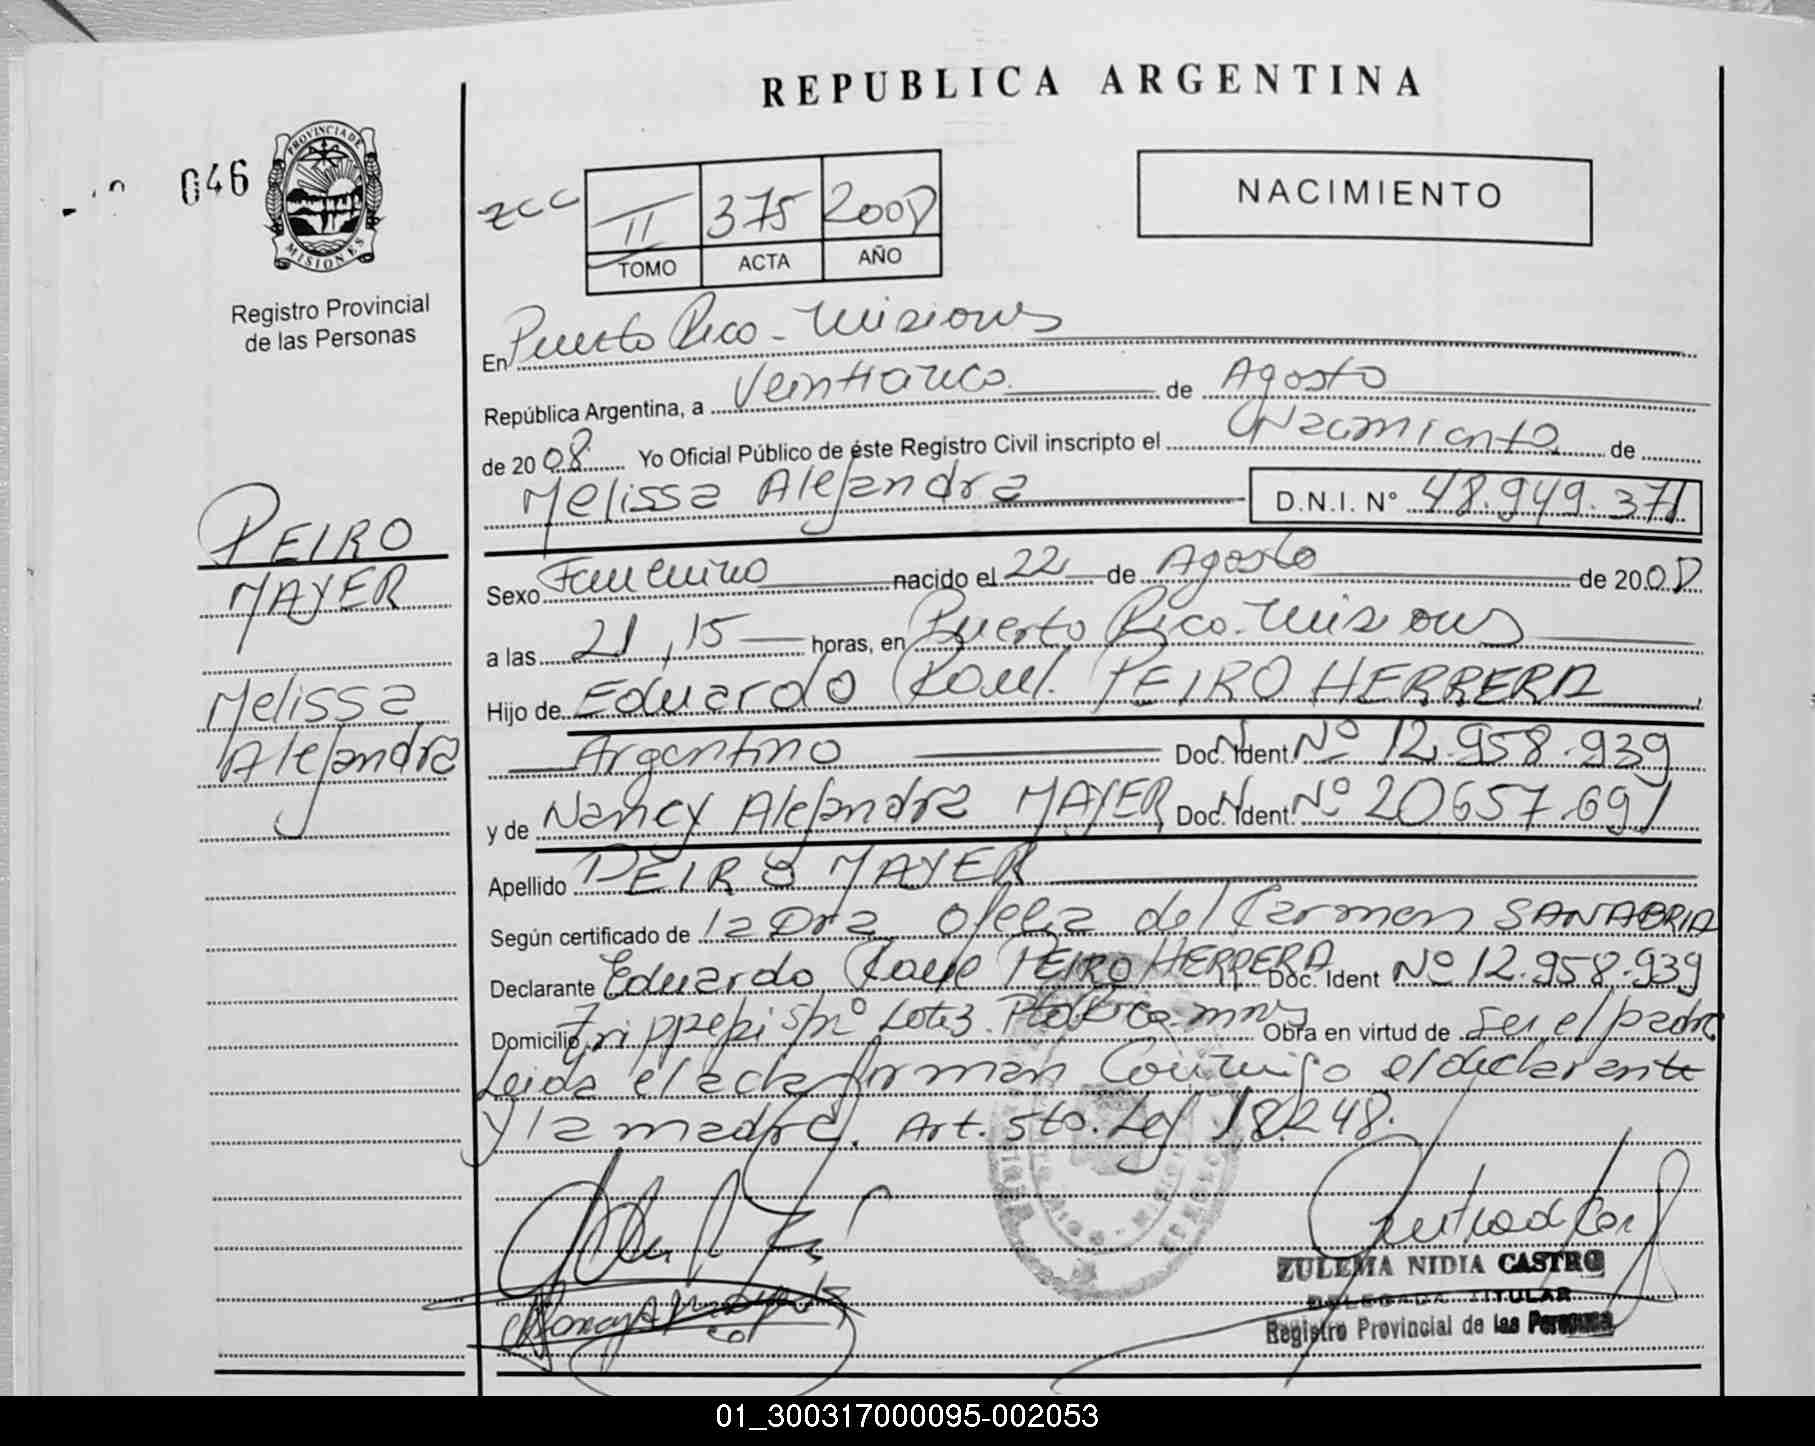 REPUBLICA ARGENTINA
046
PROVINCIA DE
MISIONES
Registro Provincial
de las Personas
zcc
II 375 2008
TOMO ACTA AÑO
NACIMIENTO
En Puerto Rico - Misiones
República Argentina, a Veinticinco de Agosto
de 2008 Yo Oficial Público de éste Registro Civil inscripto el Nacimiento de
Melissa Alejandra D.N.I. Nº 48.949.371
PEIRO
MAYER
Melissa
Alejandra
Sexo Femenino nacido el 22 de Agosto de 2008
a las 21,15 horas, en Puerto Rico - Misiones
Hijo de Eduardo Raul PEIRO HERRERA
Argentino Doc. Ident. Nº 12.958.939
y de Nancy Alejandra MAYER Doc. Ident. Nº 20657.691
Apellido PEIRO MAYER
Según certificado de la Dra Ofelia del Carmen SANABRIA
Declarante Eduardo Raul PEIRO HERRERA Doc. Ident Nº 12.958.939
Domicilio s/nº Lote 3 Pto Rico mnes Obra en virtud de ser el padre
Leida el acta firman Conmigo el declarante
y la madre. Art. 5to. Ley 18.248.
ZULEMA NIDIA CASTRO
DELEGADA TITULAR
Registro Provincial de las Personas
01_300317000095-002053